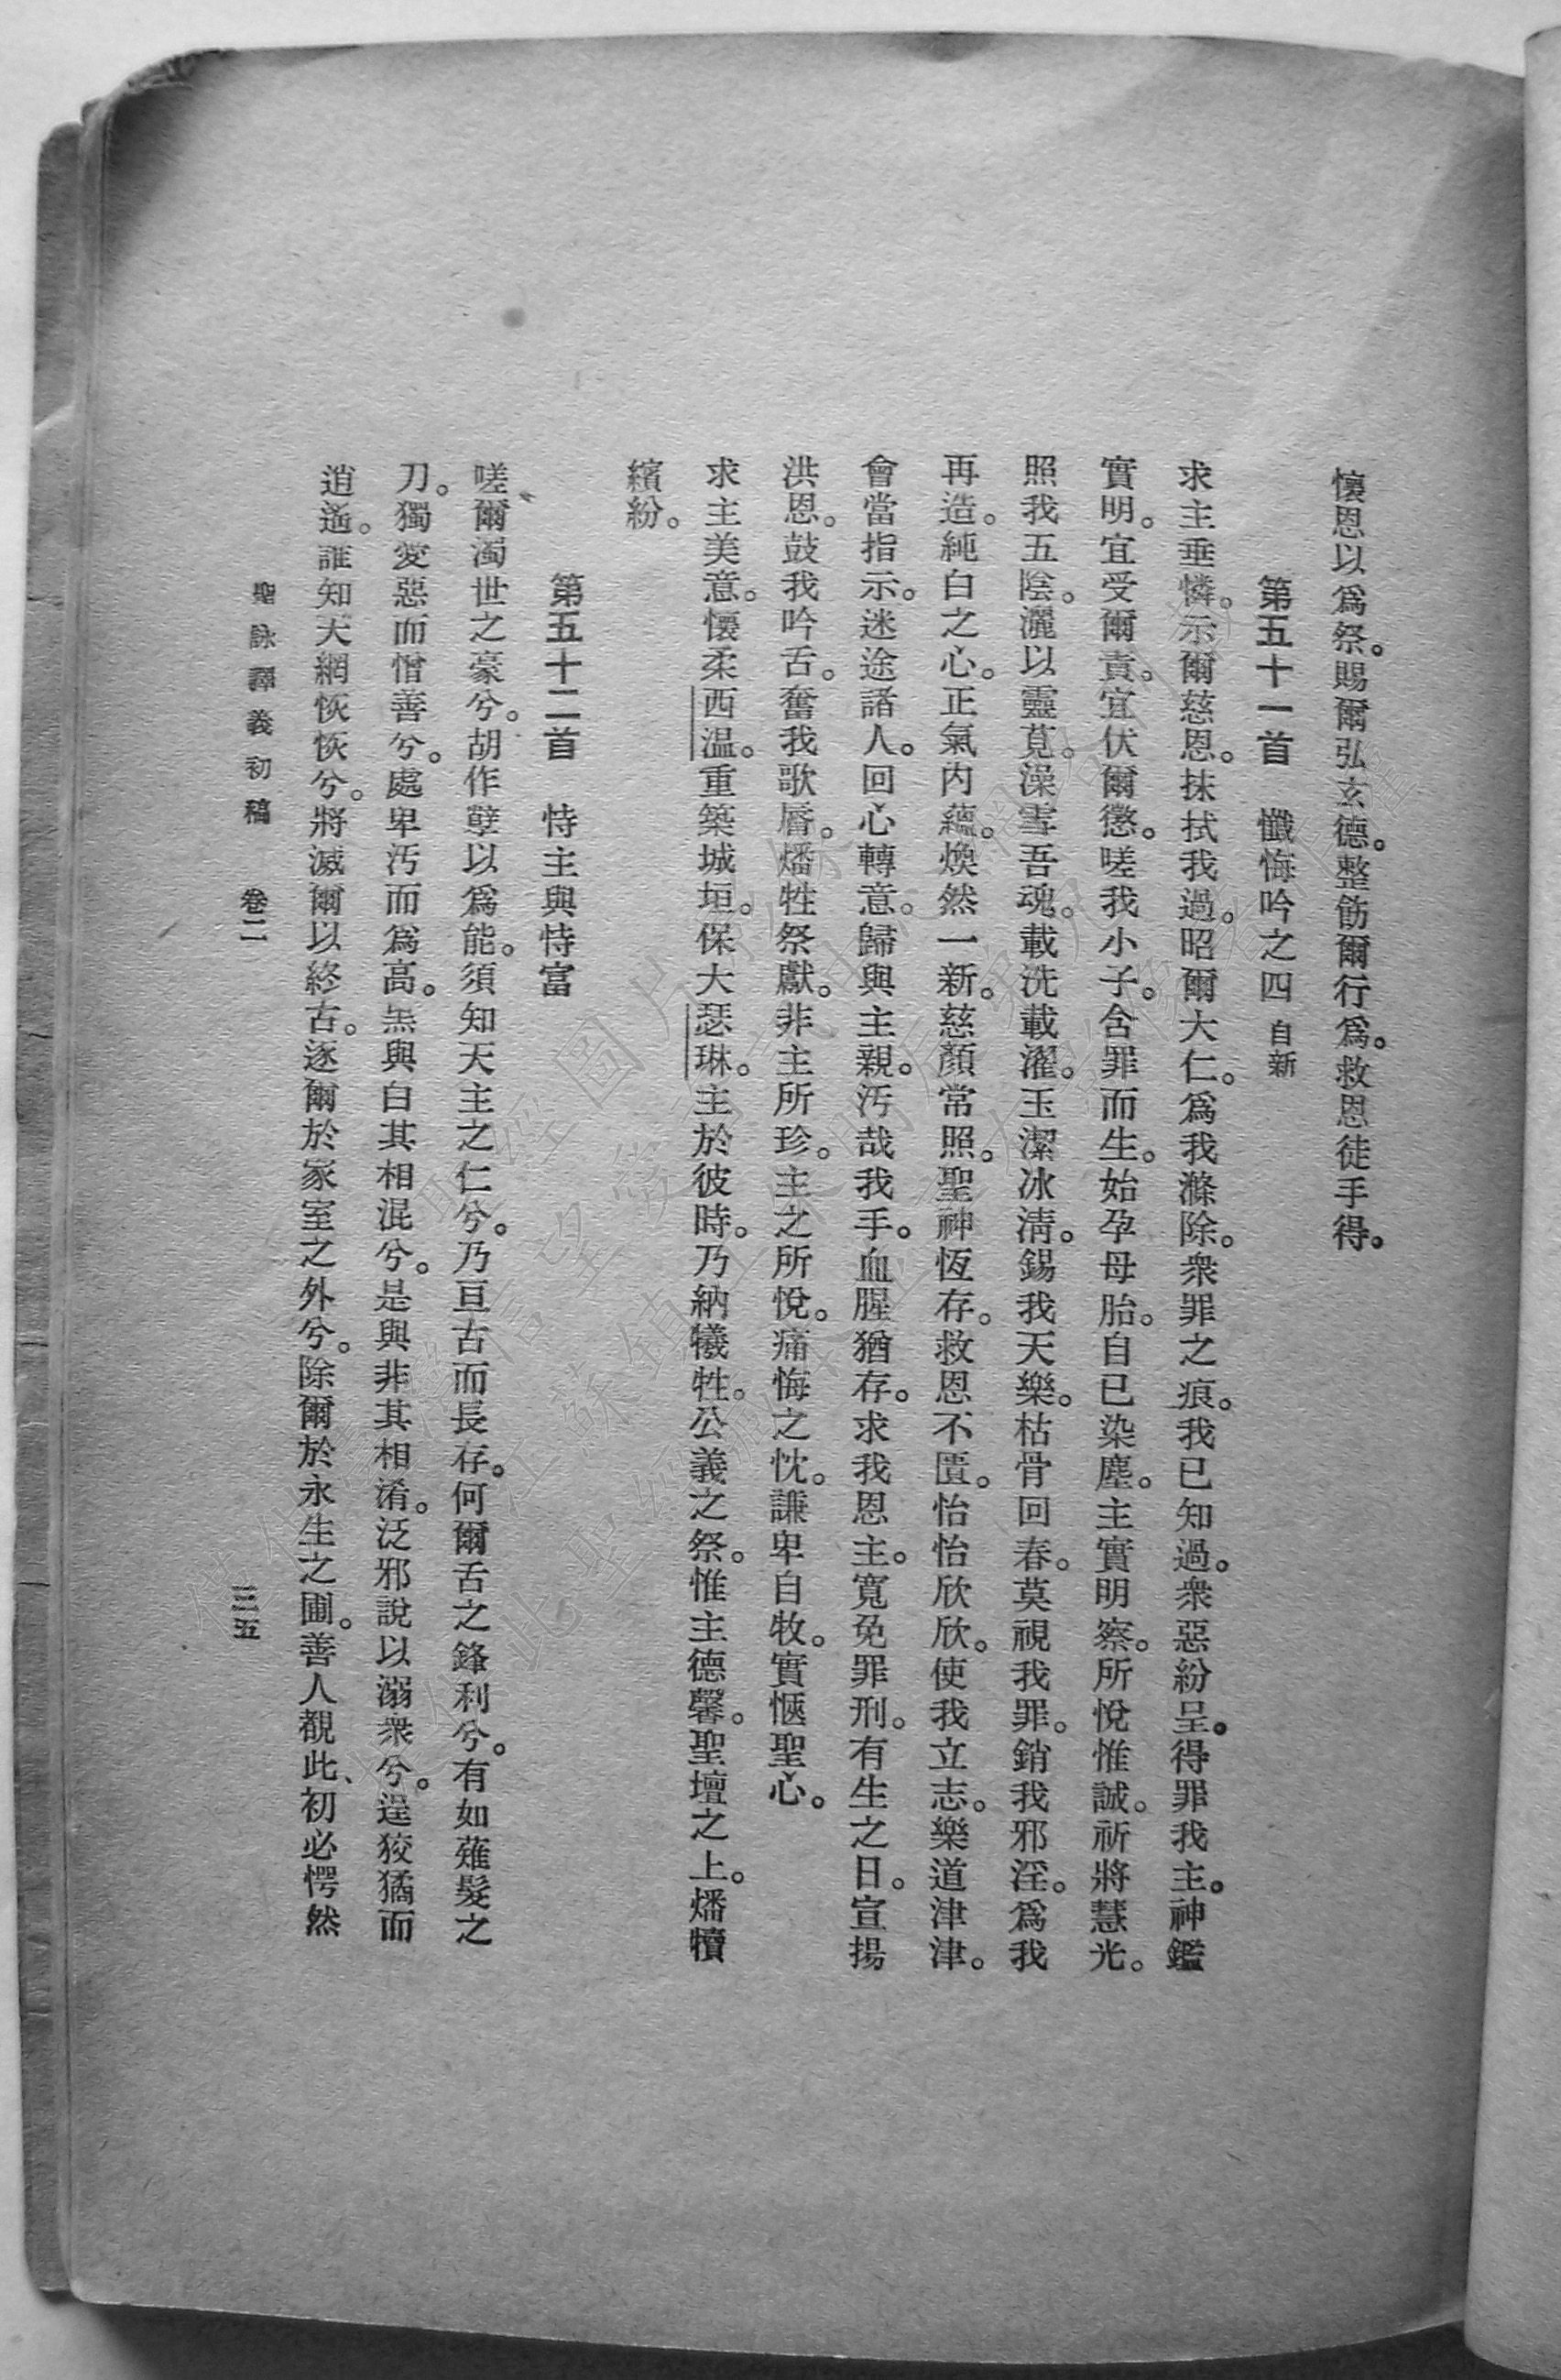 懷恩以爲祭。賜爾弘玄德。整飭爾行爲。救恩徒手得。
第五十一首 懺悔吟之四 自新
求主垂憐。示爾慈恩。抹拭我過。昭爾大仁。爲我滌除。衆罪之痕。我已知過。衆惡紛呈。得罪我主。神鑑
實明。宜受爾責。宜伏爾懲。嗟我小子。含罪而生。始孕母胎。自已染塵。主實明察。所悅惟誠。祈將慧光。
照我五陰。灑以靈莧。澡雪吾魂。載洗載濯。玉潔冰淸。錫我天樂。枯骨回春。莫視我罪。銷我邪淫。爲我
再造。純白之心。正氣內蘊。煥然一新。慈顏常照。聖神恆存。救恩不匱。怡怡欣欣。使我立志。樂道津津。
會當指示。迷途諸人。回心轉意。歸與主親。汚哉我手。血腥猶存。求我恩主。寬免罪刑。有生之日。宣揚
洪恩。鼓我吟舌。奮我歌脣。燔牲祭獻。非主所珍。主之所悅。痛悔之忱。謙卑自牧。實愜聖心。
求主美意。懷柔西溫。重築城垣。保大瑟琳。主於彼時。乃納犧牲。公義之祭。惟主德馨。聖壇之上。燔犢
繽紛。
第五十二首 恃主與恃富
嗟爾濁世之豪兮。胡作孽以爲能。須知天主之仁兮。乃亘古而長存。何爾舌之鋒利兮。有如薙髮之
刀。獨愛惡而憎善兮。處卑汚而爲高。黑與白其相混兮。是與非其相淆。泛邪說以溺衆兮。逞狡猾而
逍遙。誰知天網恢恢兮。將滅爾以終古。逐爾於家室之外兮。除爾於永生之圃。善人覩此、初必愕然
聖詠譯義初稿 卷二
三五